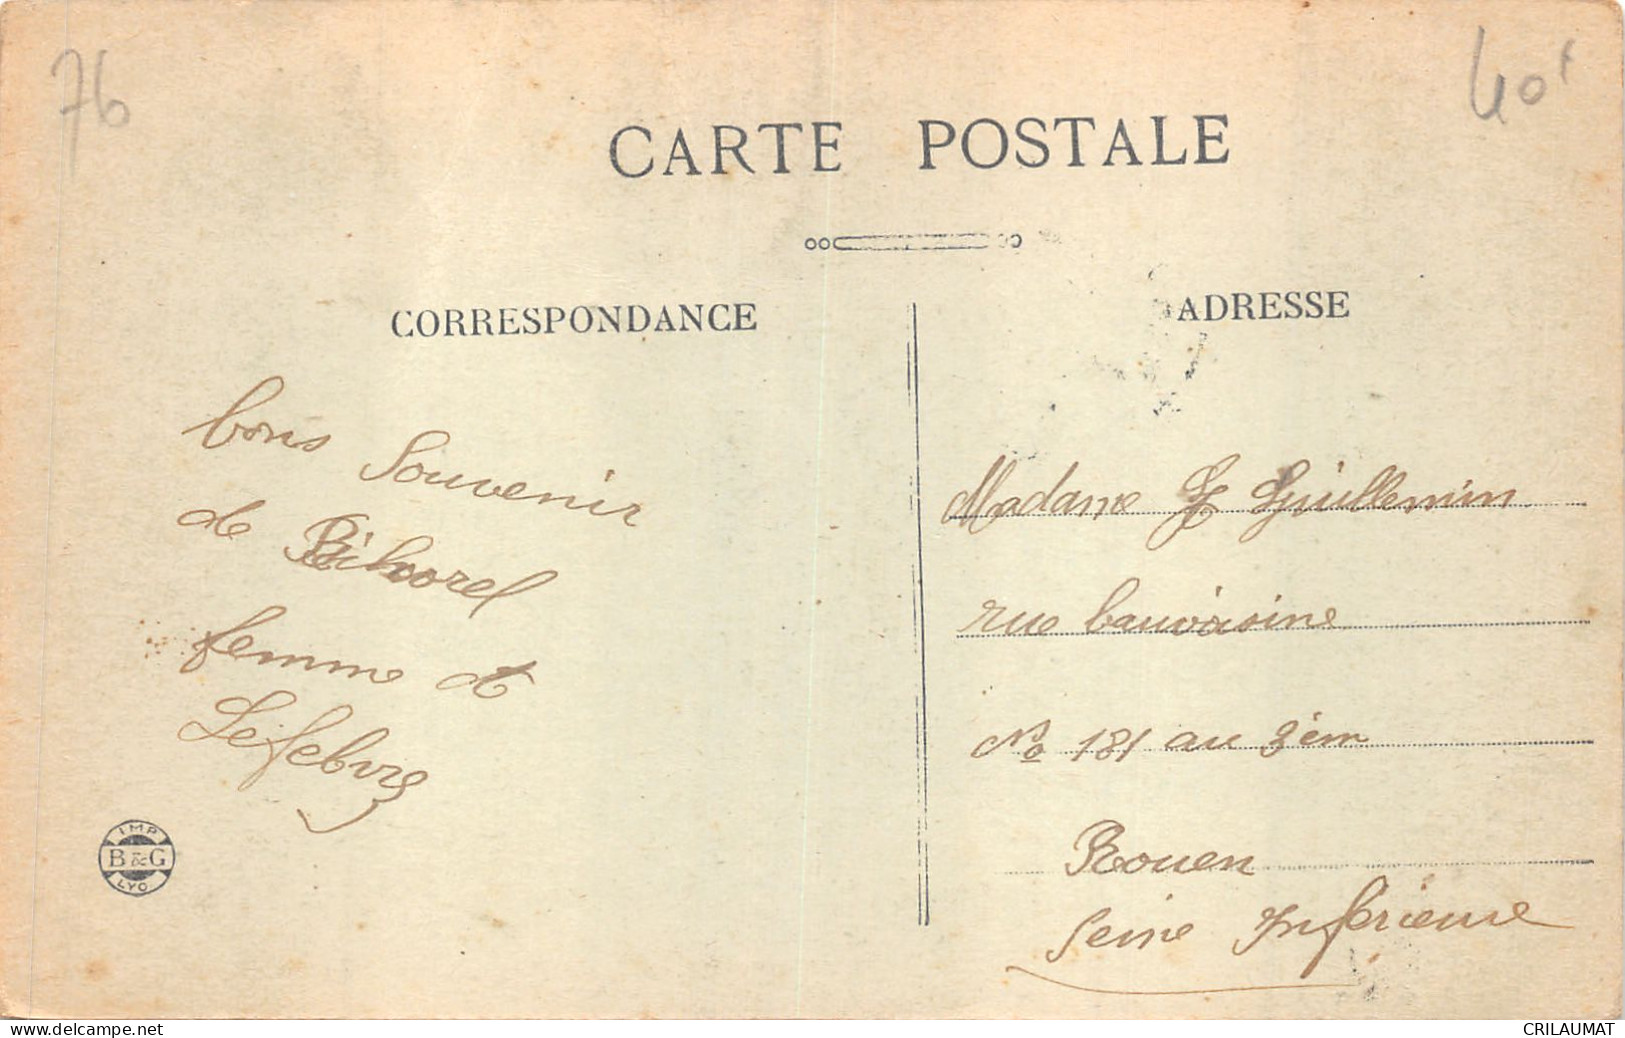 76
40f
CARTE POSTALE
CORRESPONDANCE
ADRESSE
bons Souvenir
de Bihorel
femme et
Lefebvre
Madame Guillemin
rue bauvoisine
No 181 au 3èm
Rouen
Seine Inférieure
IMP
B & G
LYO
delcampe.net
CRILAUMAT